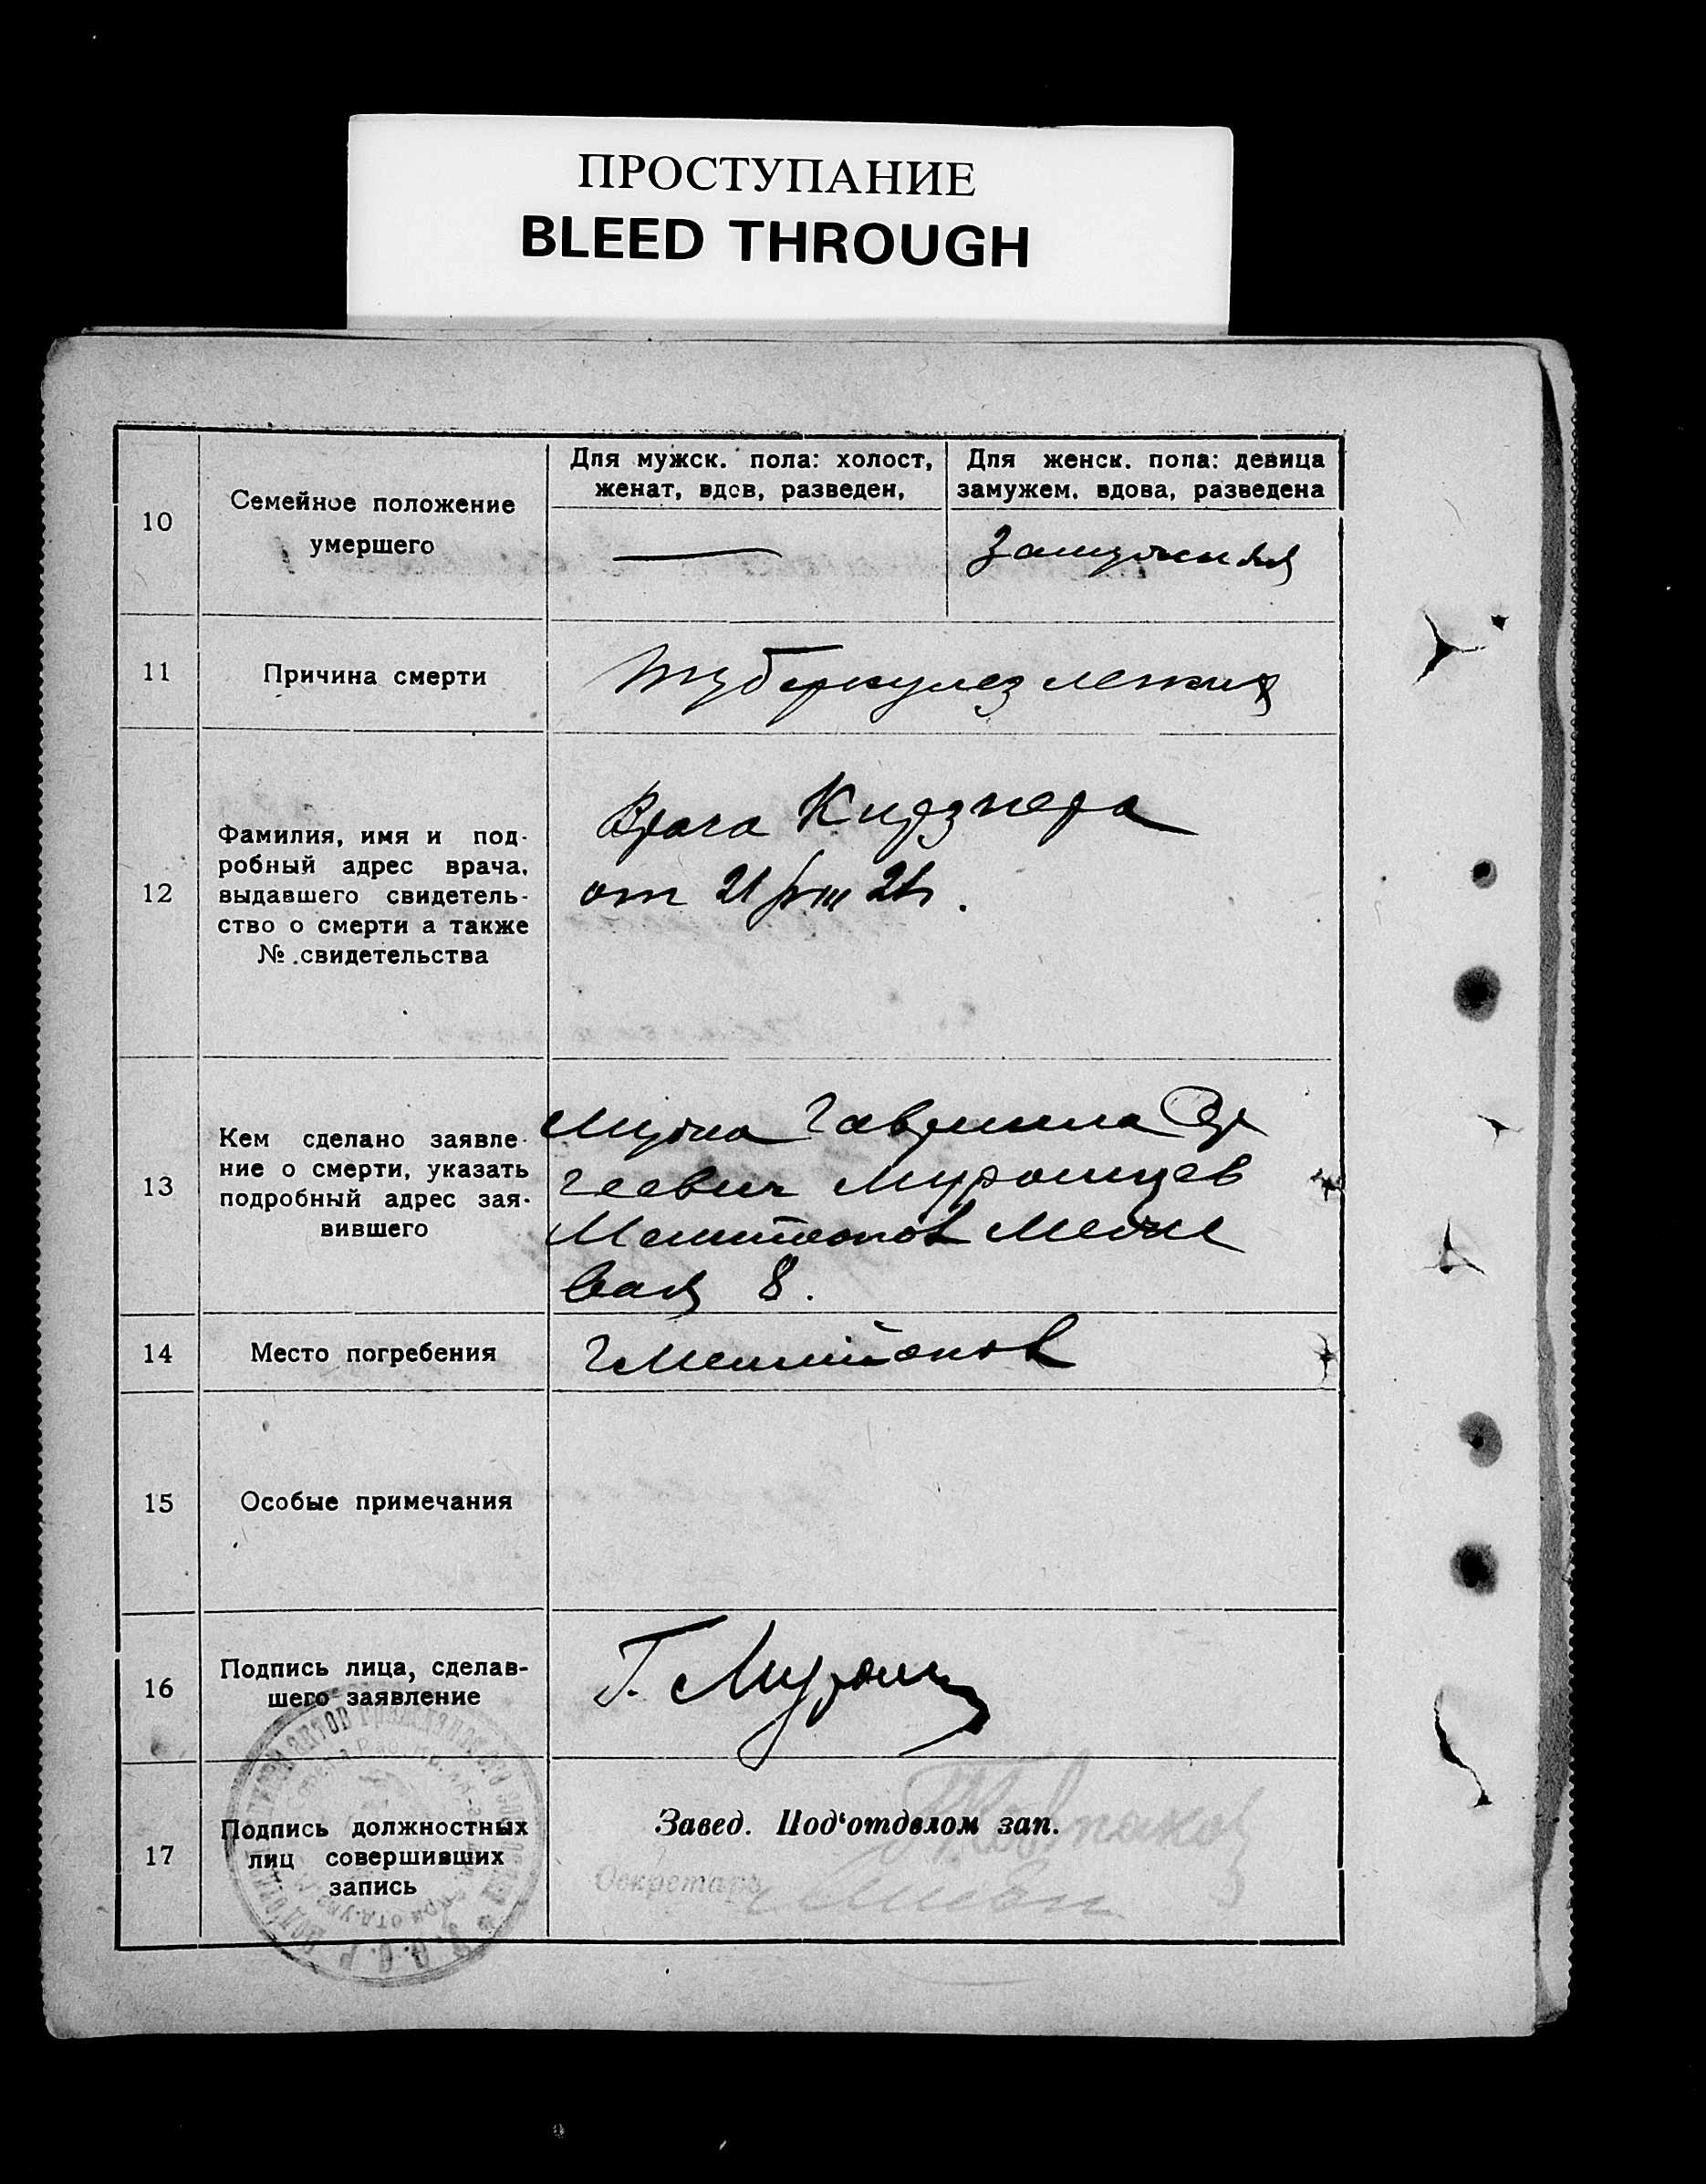 ПРОСТУПАНИЕ
BLEED THROUGH
10
Семейное положение
умершего
Для мужск. пола: холост,
женат, вдов, разведен,
Для женск. пола: девица
замужем. вдова, разведена
Замужняя
11
Причина смерти
Туберкулез легких
12
Фамилия, имя и под-
робный адрес врача,
выдавшего свидетель-
ство о смерти а также
№ свидетельства
Врача
от 21/VIII
13
Кем сделано заявле-
ние о смерти, указать
подробный адрес зая-
вившего
Мужа Гавриила Сер
геевич Муромцев
Мелитополь Меже
вая 8.
14
Место погребения
г Мелитополь
15
Особые примечания
16
Подпись лица, сделав-
шего заявление
Г. Муромц
17
Подпись должностных
лиц совершивших
запись
Завед. Под‘отделом зап.
Секретарь